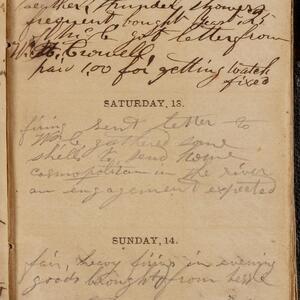 weather, thunder showers
frequent bought
to get letter from
W. H. Crowell
paid 1,00 for getting watch
fixed
SATURDAY, 13.
firing sent letter to
gathered some
shells to send home
cosmopolitan in the river
an engagement expected
SUNDAY, 14.
fair, heavy firing in evening
goods brought from